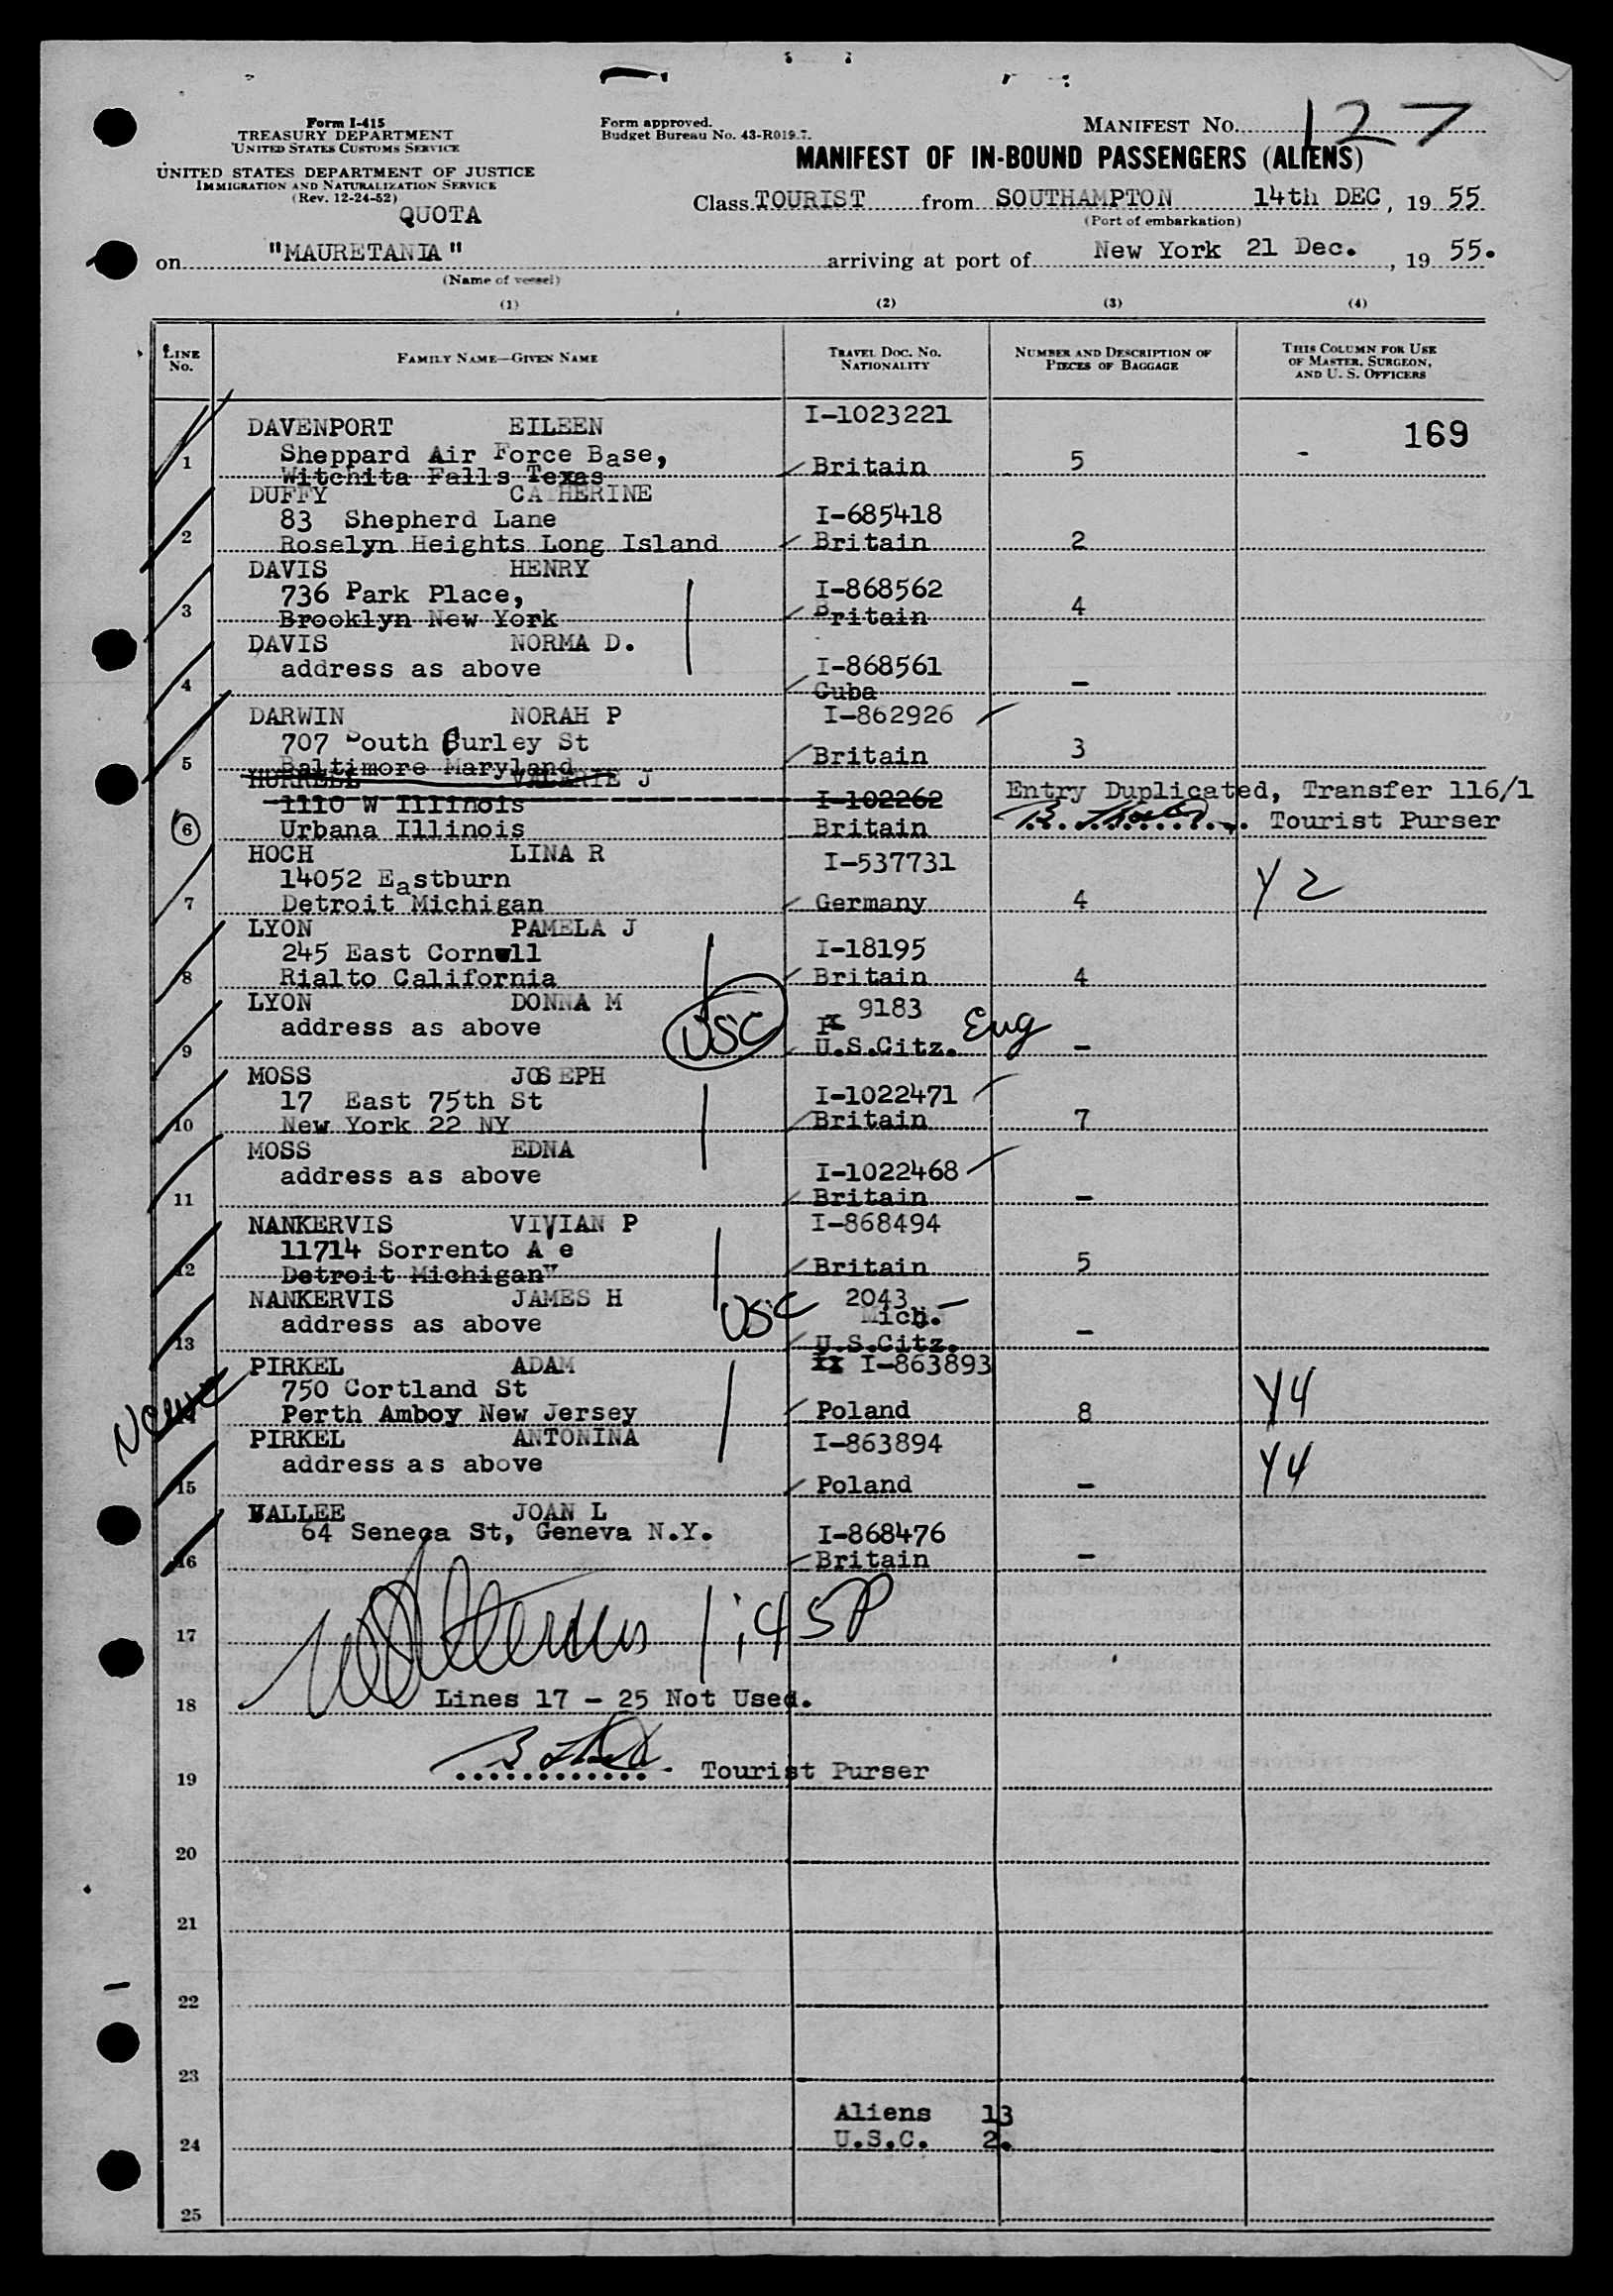 Form I-415
TREASURY DEPARTMENT
UNITED STATES CUSTOMS SERVICE
UNITED STATES DEPARTMENT OF JUSTICE
IMMIGRATION AND NATURALIZATION SERVICE
(Rev. 12-24-52)
QUOTA
Form approved.
Budget Bureau No. 43-R019.7.
MANIFEST NO. 127
MANIFEST OF IN-BOUND PASSENGERS (ALIENS)
Class TOURIST from SOUTHAMPTON 14th DEC, 19 55
(Port of embarkation)
on "MAURETANIA" arriving at port of New York 21 Dec. , 19 55.
(Name of vessel)
(1) (2) (3) (4)
LINE No. FAMILY NAME—GIVEN NAME TRAVEL DOC. NO. NATIONALITY NUMBER AND DESCRIPTION OF PIECES OF BAGGAGE THIS COLUMN FOR USE OF MASTER, SURGEON, AND U. S. OFFICERS
DAVENPORT EILEEN I-1023221 169
Sheppard Air Force Base,
1 Witchita Falls Texas Britain 5 -
DUFFY CATHERINE
83 Shepherd Lane I-685418
2 Roselyn Heights Long Island Britain 2
DAVIS HENRY
736 Park Place, I-868562
3 Brooklyn New York Britain 4
DAVIS NORMA D.
address as above I-868561
4 Cuba -
DARWIN NORAH P I-862926
707 South Curley St
5 Baltimore Maryland Britain 3
HURRELL VALARIE J
1110 W Illinois I-102262 Entry Duplicated, Transfer 116/1
6 Urbana Illinois Britain Tourist Purser
HOCH LINA R I-537731
14052 Eastburn Y2
7 Detroit Michigan Germany 4
LYON PAMELA J
245 East Cornwll I-18195
8 Rialto California Britain 4
LYON DONNA M 9183
address as above USC Eng
9 U.S.Citz. -
MOSS JOSEPH
17 East 75th St I-1022471
10 New York 22 NY Britain 7
MOSS EDNA
address as above I-1022468
11 Britain -
NANKERVIS VIVIAN P I-868494
11714 Sorrento A e
12 Detroit Michiganv Britain 5
NANKERVIS JAMES H USC 2043
address as above Mich.
13 U.S.Citz. -
PIRKEL ADAM xx I-863893
750 Cortland St Y4
14 Perth Amboy New Jersey Poland 8
PIRKEL ANTONINA I-863894
address as above Y4
15 Poland -
VALLEE JOAN L
64 Seneca St, Geneva N.Y. I-868476
16 Britain -
17 1:45P
18 Lines 17 - 25 Not Used.
19 Tourist Purser
20
21
22
23
Aliens 13
24 U.S.C. 2.
25